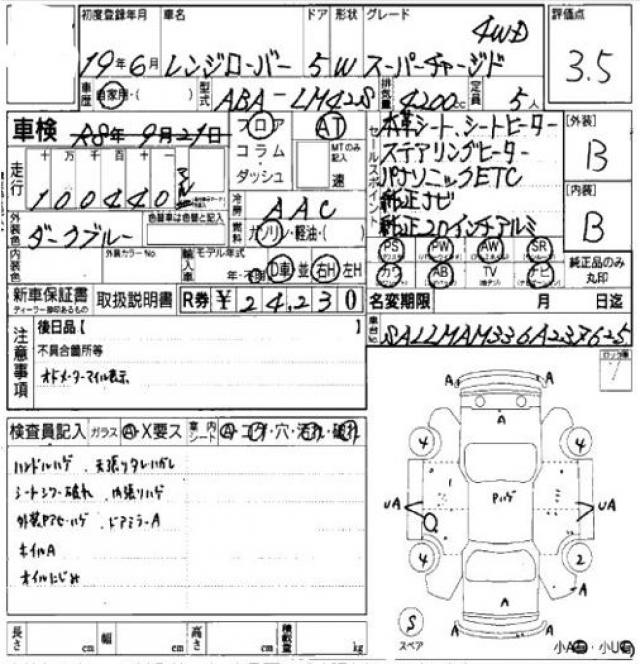 初度登録年月 車名 ドア 形状 グレード 評価点
19年6月 レンジローバー 5 W スーパーチャージド 4WD 3.5
車歴 自家用・( ) 型式 ABA-LM42S 排気量 4200cc 定員 5人
車検 R8年9月21日 フロア AT
コラム・ダッシュ MTのみ記入 速
走行 十万千百十一
100440 マイル
セールスポイント
本革シート、シートヒーター
ステアリングヒーター
パナソニックETC
純正ナビ
純正20インチアルミ
[外装] B
[内装] B
冷房 AAC
外装色 ダークブルー 色替車は色替と記入 燃料 ガソリン・軽油・( )
内装色 外装カラーNo. 輸入車 モデル年式 年・不明 D車 並 右H 左H
PS PW AW SR
カワ AB TV ナビ
純正品のみ丸印
新車保証書 取扱説明書 R券 ¥24,230 名変期限 月 日迄
ディーラー捺印あるもの
車台No. SALLMAM336A237625
注意事項
後日品【 】
不具合箇所等
オドメーターマイル表示
検査員記入 ガラス A・X要ス 室内シート A・コゲ・穴・汚れ・破れ
ハンドルハゲ、天張リタレハガレ
シートシワー破れ、内張リハゲ
外装Pアセ・ハゲ、ドアミラーA
ホイルA
オイルにじみ
A A
A
4 4
UA Pハゲ UA
4 2
A A
S スペア
A A
長さ cm 幅 cm 高さ cm 積載量 kg
小A・小U